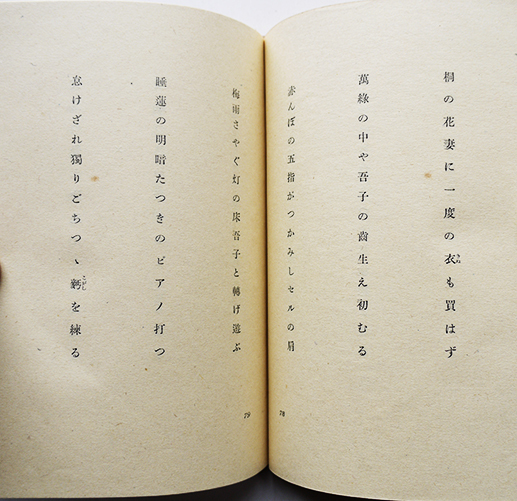 桐の花妻に一度の衣も買はず
きぬ
萬綠の中や吾子の齒生え初むる
赤んぼの五指がつかみしセルの肩
78
梅雨さやぐ灯の床吾子と轉げ遊ぶ
睡蓮の明暗たつきのピアノ打つ
怠けざれ獨りごちつゝ麪を練る
79